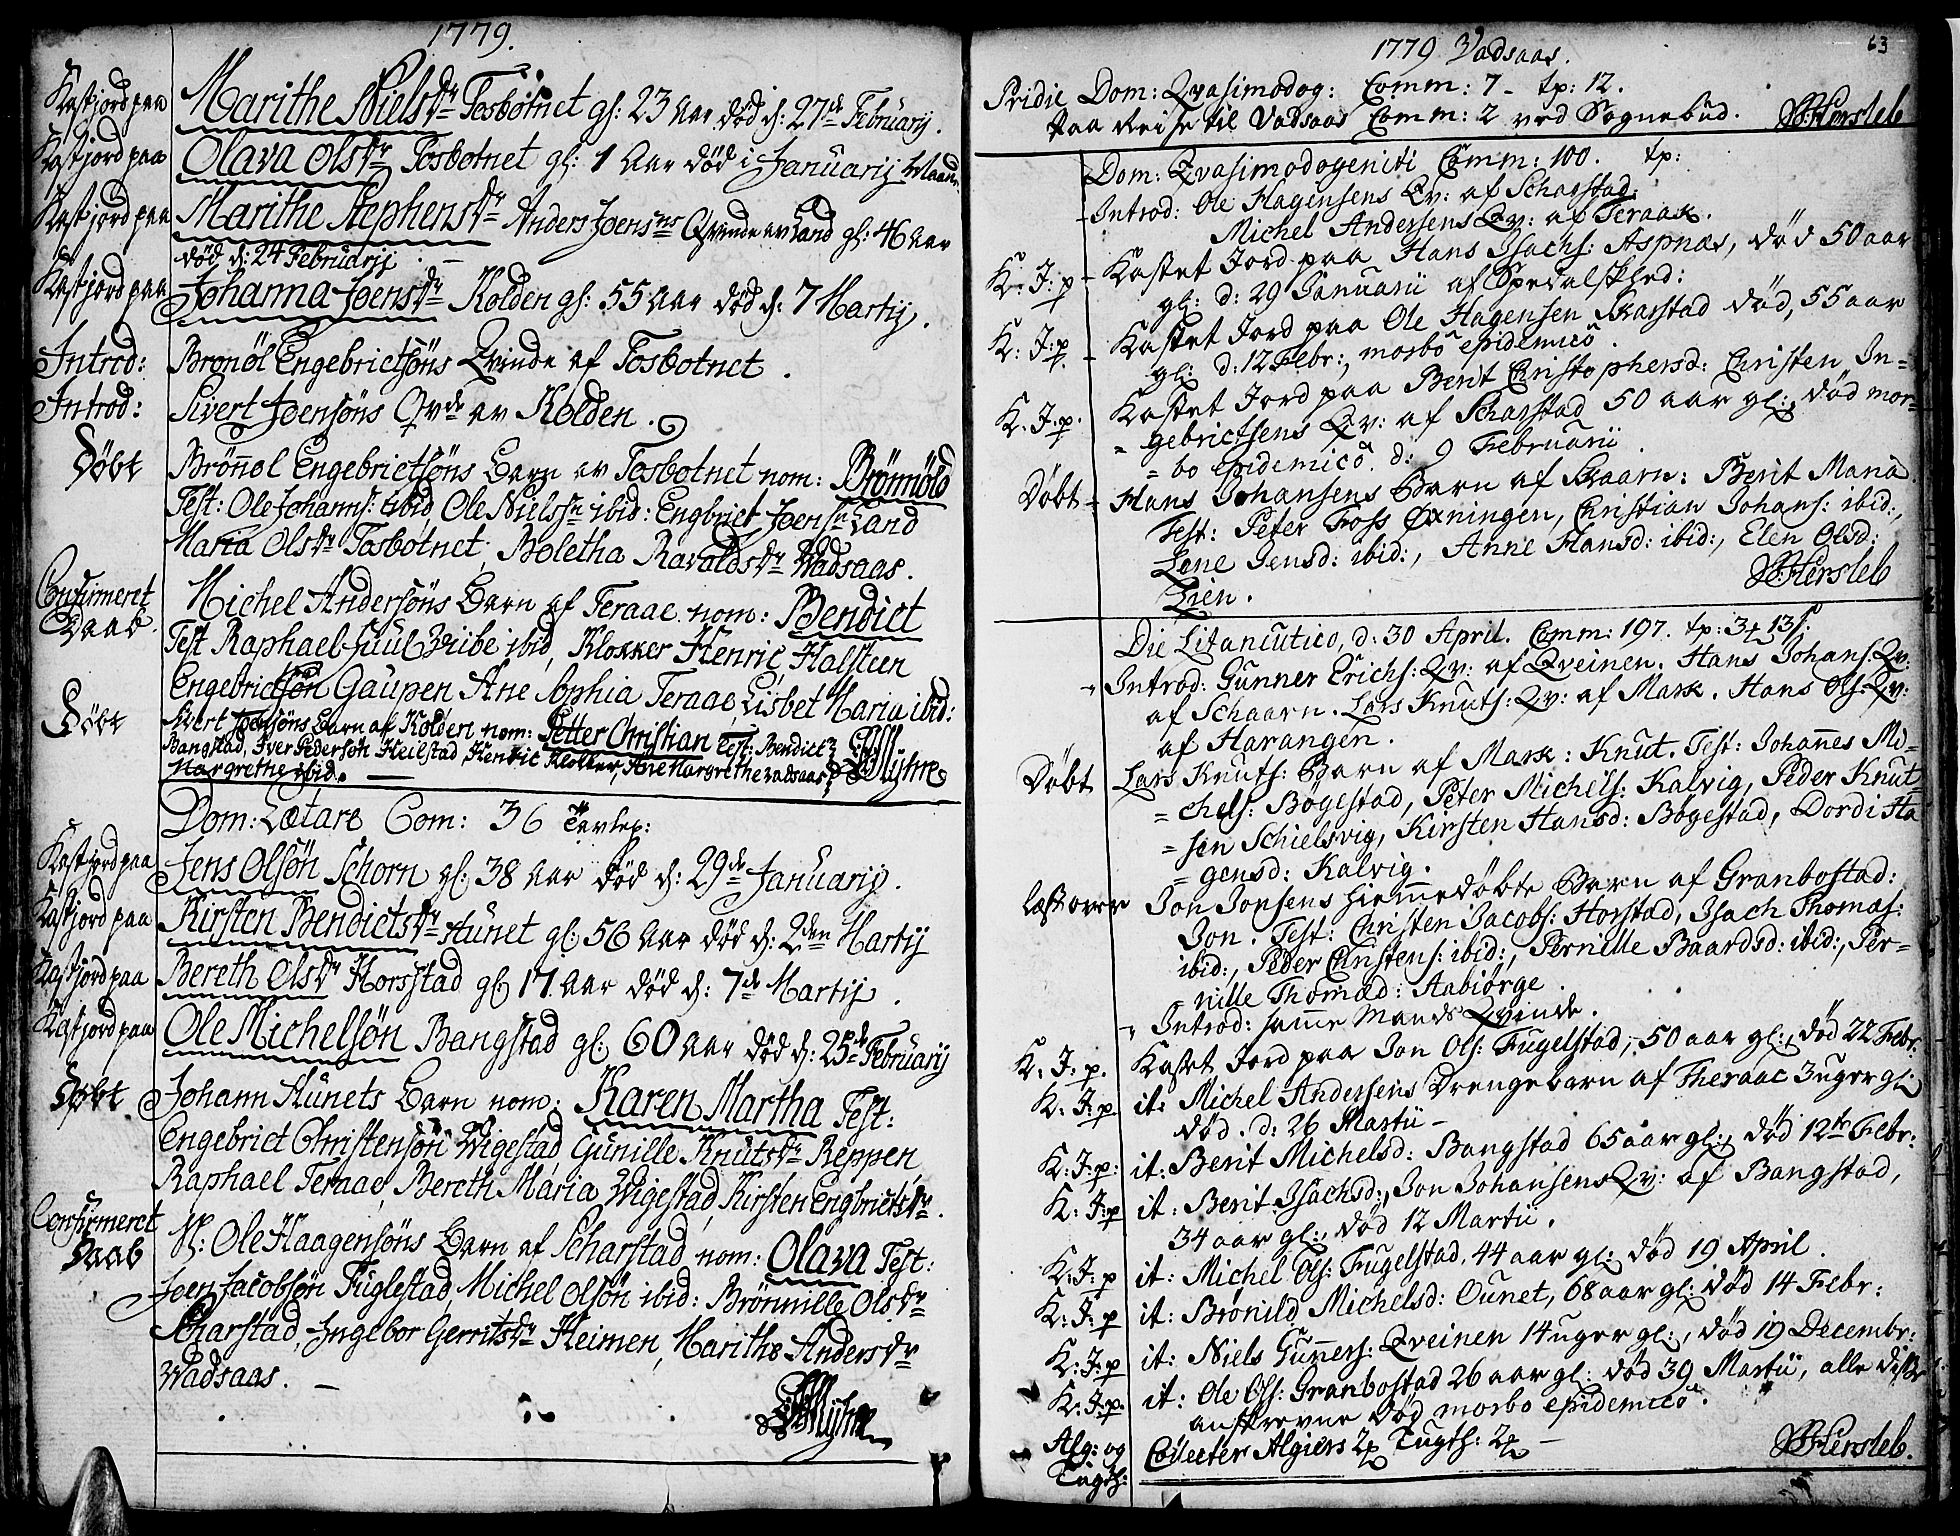 1779.
Kastjord paa Marithe Nielsdr Tosbotnet gl: 23 Aar død d: 27de Februarij.
Kastjord paa Olava Olsdr Tosbotnet gl: 1 Aar død i Januarij Maan
Kastjord paa Marithe Stephensdr Anders Joensøns Qvinde av Land gl: 46 Aar
død d: 24 Februarij
Kastjord paa Johanna Joensdr Kolden gl: 55 Aar død d: 7 Martij.
Introd: Bronøl Engebrictsøns Qvinde af Tosbotnet.
Introd: Sivert Joensøns Qvde av Kolden.
Døbt Brønnøl Engebrictsøns Barn av Tosbotnet nom: Brønnold
Test: Ole Johans: ibid, Ole Nielssn ibid: Engbrict Joensn Land
Maria Olsdr Tosbotnet, Boletha Ravaldsdr Wadsaas.
Confirmeret Daab Michel Andersøns Barn af Teraae nom: Bendict
Test Raphael Juul Wibe ibid, Klokker Henric Halsteen
Engebrictsøn Gaupen Ane Sophia Teraae, Lisbet Maria ibid:
Døbt Sivert Joensøns Barn af Kolden nom: Petter Christian Test: Bendict
Bangstad, Iver Pedersøn Heilstad, Henric Klokker, Ane Margrethe Vadsaas
Margrethe ibid. Myhre
Dom: Lætare Com: 36
Kastjord paa Jens Olsøn Schorn gl: 38 Aar død d: 29de Januarij.
Kastjord paa Kirsten Bendictsdr Aunet gl: 56 Aar død d: 2den Martij
Kastjord paa Bereth Olsdr Horsstad gl: 17 Aar død d: 7de Martij.
Kastjord paa Ole Michelsøn Bangstad gl: 60 Aar død d: 25de Februarij
Døbt Johann Aunets Barn nom: Karen Martha Test:
Engebrict Christensøn Wigestad Gunille Knutsdr Reppen,
Raphael Teraae, Bereth Maria Wigestad, Kirsten Engbrictsdr.
Confirmeret Daab N: Ole Haagensøns Barn af Scharstad nom: Olava Test:
Joen Jacobsøn Fuglestad, Michel Olsøn ibid: Brønnille Olsdr
Scharstad, Ingebor Gerritsdr Heimen, Marithe Andersdr
Wadsaas.
Myhre
63
1779 Vadsaas.
Pridie Dom: Qvasimodog: Comm: 7 - tp: 12.
Paa Reise til Vadsaas Comm: 2 ved Sognebud. Hersleb
Dom: Qvasimodogeniti Comm: 100. tp:
Introd: Ole Hagensens Qv: af Scharstad.
Michel Andersens Qv: af Teraak.
K: J: p Kastet Jord paa Hans Isachs: Aspnæs, død 50 aar
gl: d: 29 Januarii af Spedalskhed:
K: J: p Kastet Jord paa Ole Hagensen Skarstad død, 55 aar
gl: d: 12 Febr:, morbo epidemico.
K: J: p. Kastet Jord paa Berit Christophersd: Christen In=
=gebrictsens Qv: af Scharstad 50 aar gl:, død mor=
=bo epidemico. d: 9 Februarii
Døbt Hans Johansens Barn af Skaarn: Berit Maria
Test: Peter Foss Øxningen, Christian Johans: ibid:,
Lene Jensd: ibid:, Anne Hansd: ibid:, Elen Olsd:
Lien. Hersleb
Die Litaneutico, d: 30 April. Comm: 197. tp: 34 13 s.
Introd: Gunner Erichs: Qv: af Qveinen. Hans Johans: Qv:
af Schaarn. Lars Knuts: Qv: af Mark. Hans Ols: Qv:
af Harangen.
Døbt Lars Knuts: Barn af Mark: Knut. Test: Johannes Mi=
=chels: Bøgestad, Peter Michels: Kalvig, Peder Knut
=sen Schielsvig, Kirsten Hansd: Bøgestad, Dordi Ha
=gensd: Kalvig.
Læst over Jon Jonsens hiemmedøbte Barn af Granbostad:
Jon. Test: Christen Jacobs: Horstad, Isach Thomas:
ibid:, Peder Christens: ibid:, Pernille Baardsd: ibid:, Per=
=nille Thomasd: Aabiørge.
Introd: samme Mands Qvinde.
K: J: p. Kastet Jord paa Jon Ols: Fugelstad, 50 aar gl:, død 22 Febr:
K: J: p it: Michel Andersens Drengebarn af Theraae 3 uger gl:
død d: 26 Martii -
K: J: p: it: Berit Michelsd: Bangstad 65 aar gl:, død 12te Febr:
K: J: p it: Berit Isachsd:, Jon Johansens Qv: af Bangstad,
34 aar gl:, død 12 Martii.
K: J: p it: Michel Ols: Fugelstad, 44 aar gl: død 19 April.
K: J: p it: Brønild Michelsd: Ounet, 68 aar gl: død 14 Febr:
K: J: p it: Niels Gunners: Qveinen 14 uger gl:, død 19 Decembr:
K: J: p. it: Ole Ols: Granbostad 26 aar gl: død 39 Martii, alle disse
anskrevne død morbo epidemico.
Alg: og Tugth: Collecter Algiers 2 Tugth: 2 - Hersleb.